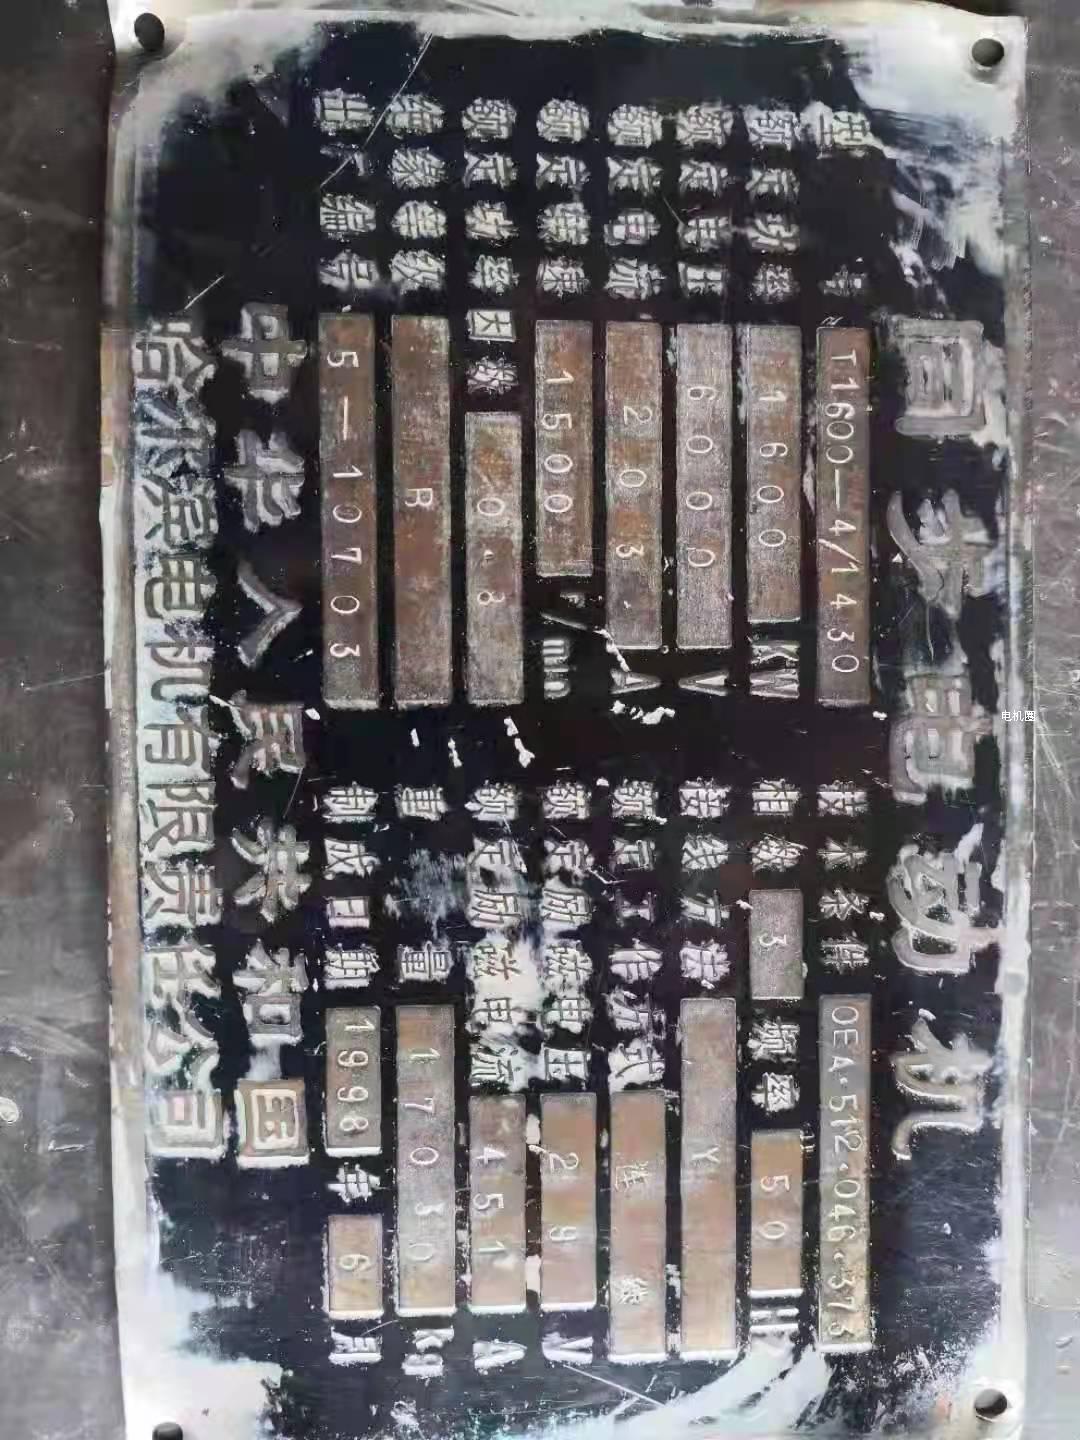 同步电动机
型号 T1600-4/1430 技术条件 OEA·512·046·373
额定功率 1600 KW 相数 3 频率 50 Hz
额定电压 6000 V 接线方法 Y
额定电流 203 A 额定工作方式 连续
额定转速 1500 r/min 额定励磁电压 29 V
额定功率因数 0.8 额定励磁电流 451 A
绝缘等级 B 重量 17030 kg
出厂编号 5-10703 制成日期 1998 年 6 月
中华人民共和国
哈尔滨电机有限责任公司
电机圈